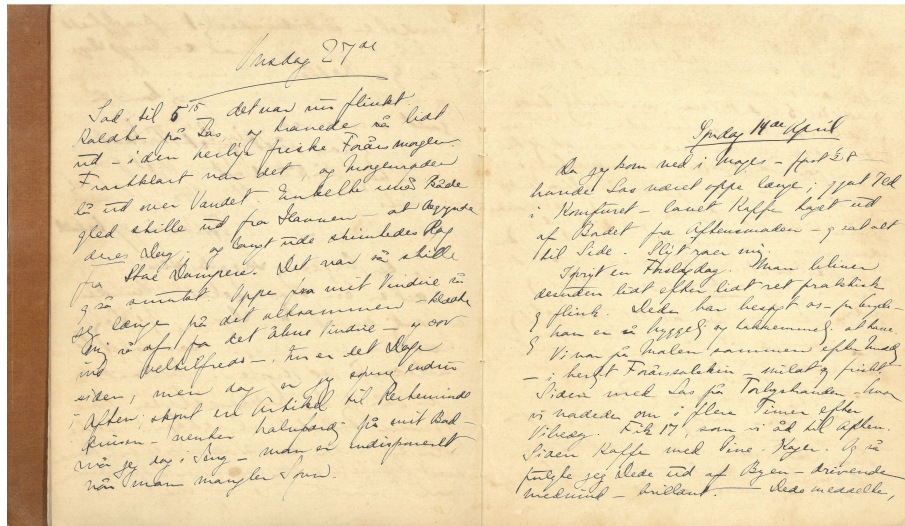 Onsdag 27de
Sad til 5 15 det var nu flinkt
på Las og havde så lidt
ud - i den herlige friske Forårsmorgen.
Frostklart var det, og Morgenrøden
lå ud over Vandet. Enkelte små Både
gled stille ud fra Havnen - at begynde
deres Dag, og langt ude skimtedes Røg
fra Store Dampere. Det var så stille
og så smukt. Oppe fra mit Vindue så
jeg længe på det altsammen - klædte
mig så af for det åbne Vindue - og sov
ind veltilfreds - nu er det Dage
siden, men dog er jeg søvnig endnu
i Aften; skønt en Artikel til Kerteminde
- venter halvfærdig på mit Bord -
må jeg dog i Seng - man er indisponeret,
når man mangler Søvn.
Søndag 14de April
Da jeg kom ned i Morges - først ½ 8 -
havde Las været oppe længe; gjort Ild
i Komfuret - lavet Kaffe
af Bordet fra Aftensmaden - og sat alt
til Side. Sligt gør mig
en Fest Man bliver
desuden lidt efter lidt ret praktisk
og flink. Dede har besøgt os -
han er så hyggelig og taknemmelig at have.
Vi var på Molen sammen efter
- i herligt Forårssolskin - mildt og friskt
Siden med Las på - hvor
vi vadede om i flere Timer efter
Vibeæg. Fik 17, som vi åd til Aften.
Siden Kaffe med Kager. Og så
fulgte jeg Dede ud af Byen - drivende
medvind - brillant. - Dede meddelte,